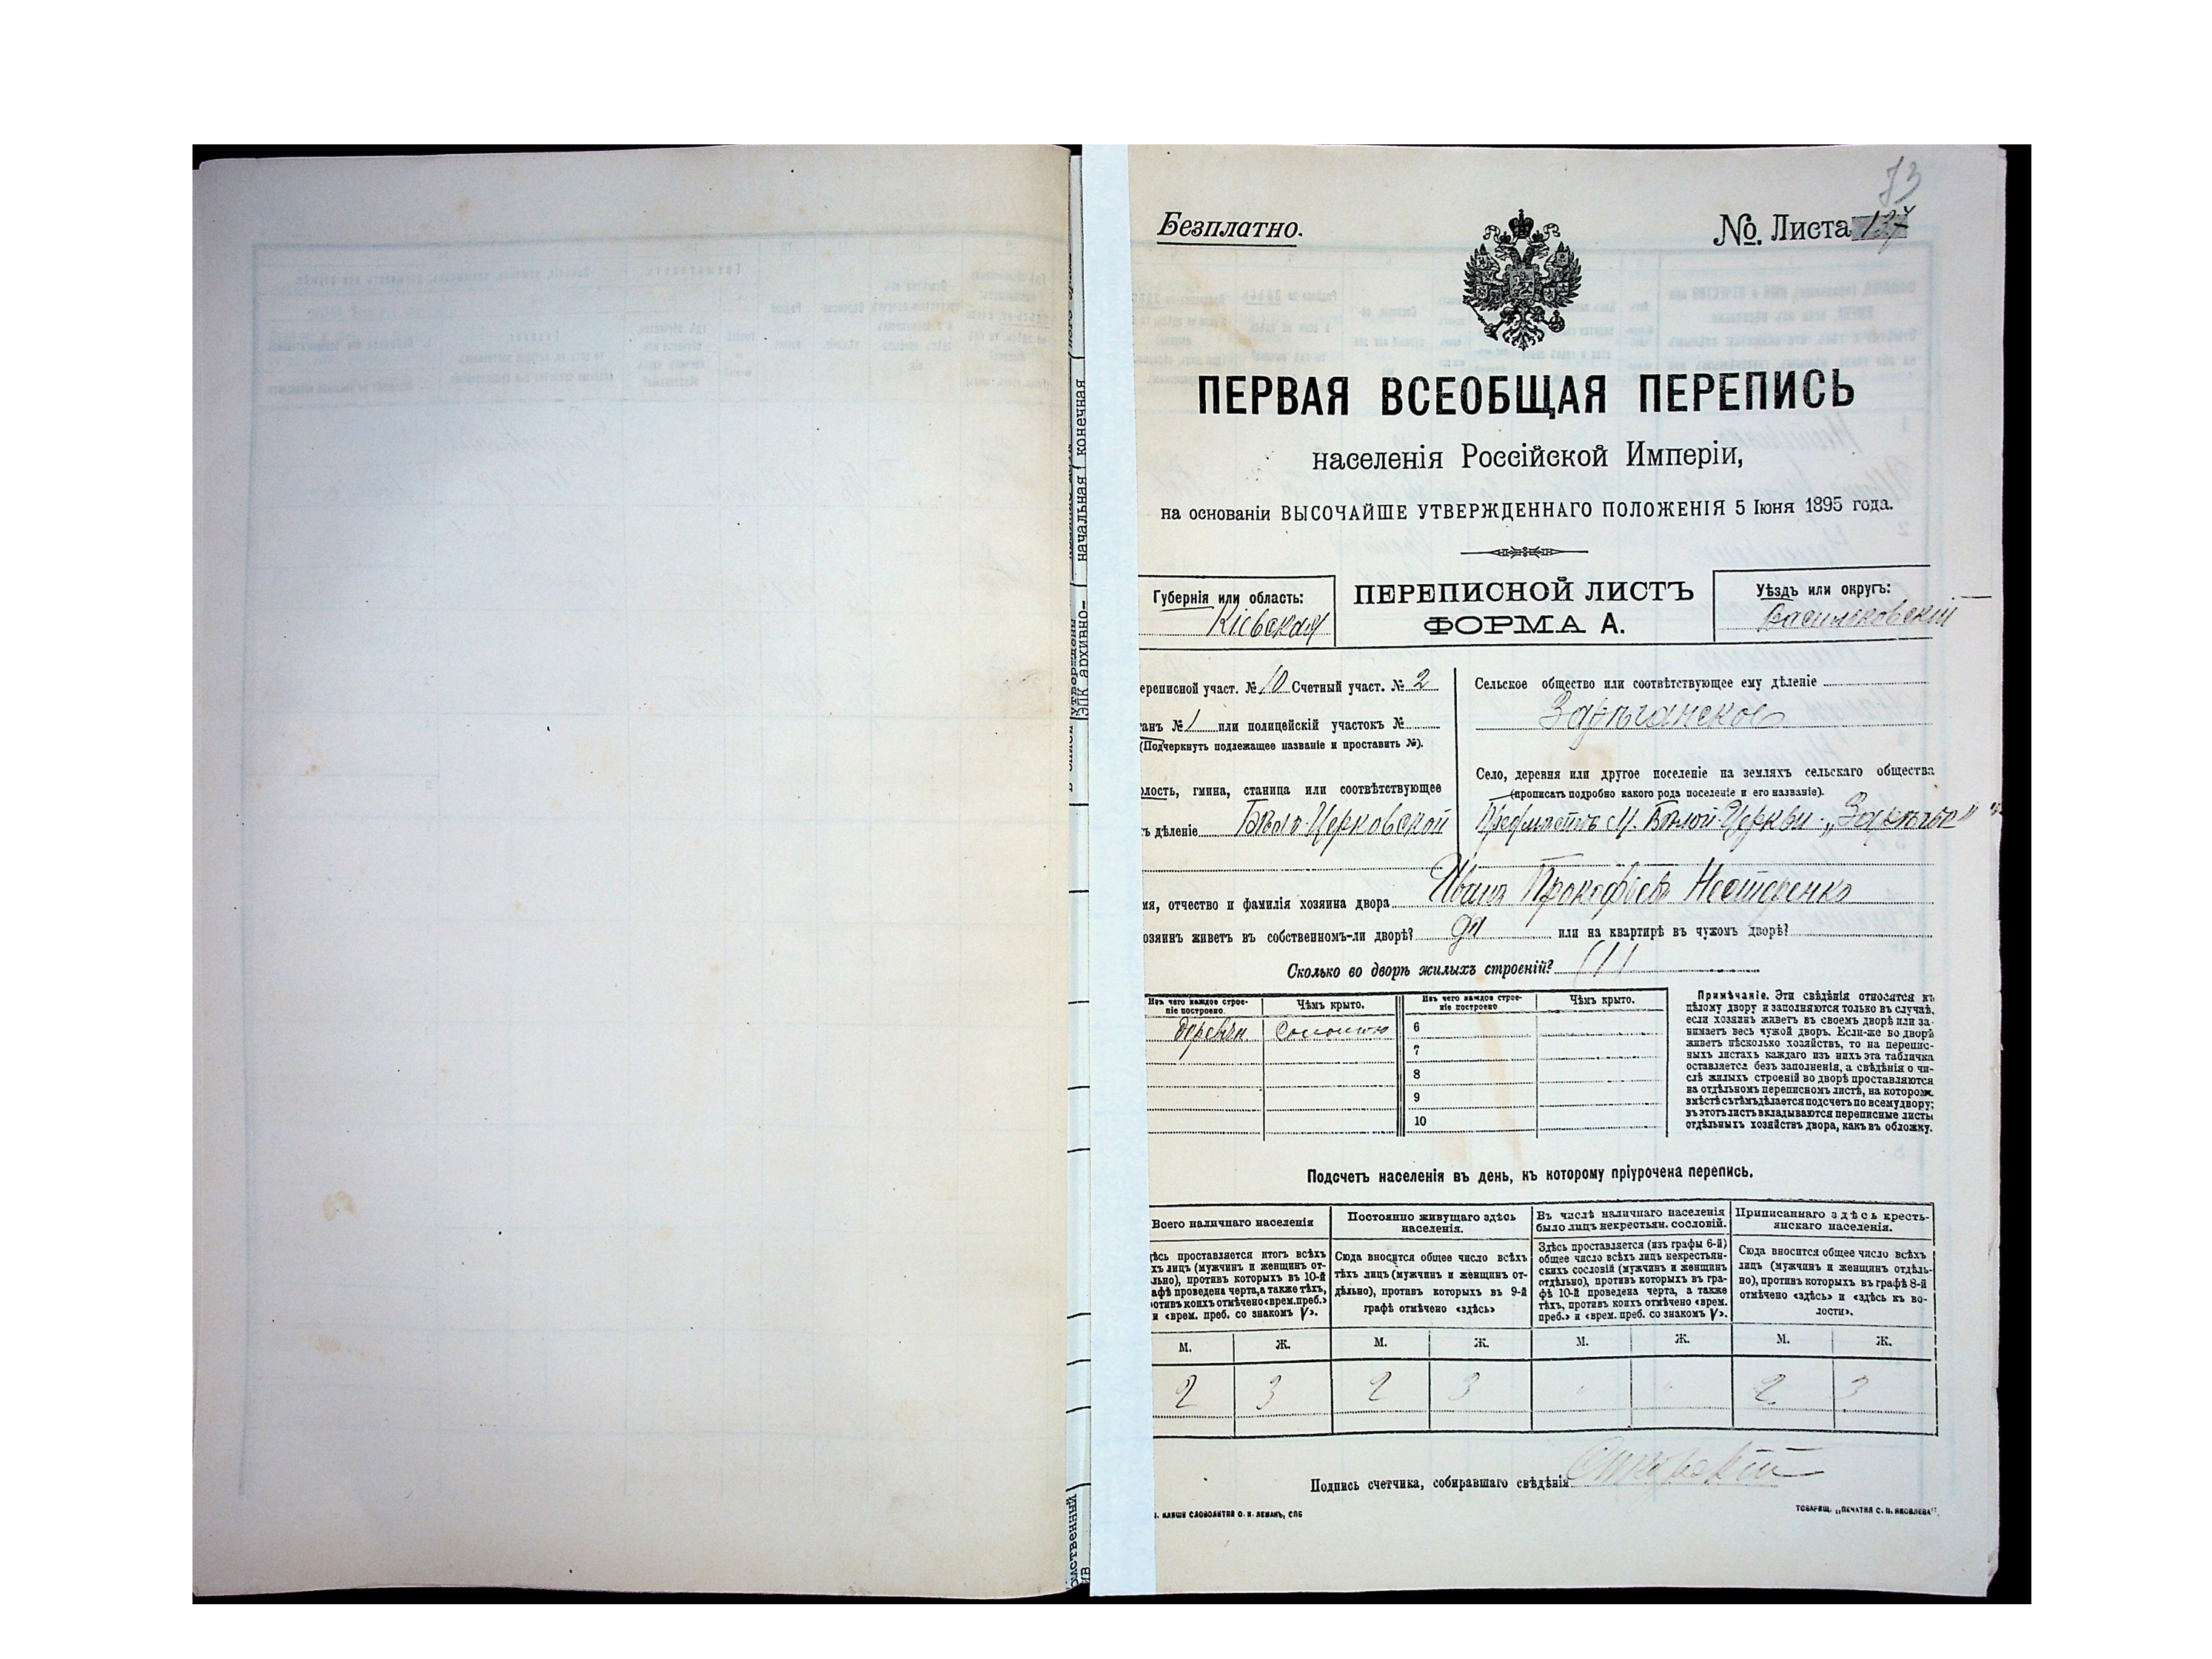 73
Безплатно.
№. Листа 137
ПЕРВАЯ ВСЕОБЩАЯ ПЕРЕПИСЬ
населенія Россійской Имперіи,
на основаніи ВЫСОЧАЙШЕ УТВЕРЖДЕННАГО ПОЛОЖЕНІЯ 5 Іюня 1895 года.
Губернія или область:
Кіевская
ПЕРЕПИСНОЙ ЛИСТЪ
ФОРМА А.
Уѣздъ или округъ:
Васильковскій
ереписной участ. № 10 Счетный участ. № 2
анъ № 1 или полицейскій участокъ №
(Подчеркнуть подлежащее названіе и проставить №).
олость, гмина, станица или соотвѣтствующее
ъ дѣленіе Бѣло-Церковской
Сельское общество или соотвѣтствующее ему дѣленіе
Зарѣчанское
Село, деревня или другое поселеніе на земляхъ сельскаго общества
(прописать подробно какого рода поселеніе и его названіе).
Предмѣстье м. Бѣлой-Церкви - „Зарѣчье"
мя, отчество и фамилія хозяина двора Иванъ Прокофьевъ Нестеренко
озяинъ живетъ въ собственномъ-ли дворѣ? да или на квартирѣ въ чужомъ дворѣ?
Сколько во дворѣ жилыхъ строеній? (1)
Изъ чего каждое строе-ніе построено. Чѣмъ крыто. Изъ чего каждое строе-ніе построено Чѣмъ крыто.
деревян. соломою 6
7
8
9
10
Примѣчаніе. Эти свѣдѣнія относятся къ
цѣлому двору и заполняются только въ случаѣ,
если хозяинъ живетъ въ своемъ дворѣ или за-
нимаетъ весь чужой дворъ. Если-же во дворѣ
живетъ нѣсколько хозяйствъ, то на перепис-
ныхъ листахъ каждаго изъ нихъ эта табличка
оставляется безъ заполненія, а свѣдѣнія о чи-
слѣ жилыхъ строеній во дворѣ проставляются
на отдѣльномъ переписномъ листѣ, на которомъ
вмѣстѣ съ тѣмъ дѣлается подсчетъ по всему двору;
въ этотъ листъ вкладываются переписные листы
отдѣльныхъ хозяйствъ двора, какъ въ обложку.
Подсчетъ населенія въ день, къ которому пріурочена перепись.
Всего наличнаго населенія
дѣсь проставляется итогъ всѣхъ
хъ лицъ (мужчинъ и женщинъ от-
льно), противъ которыхъ въ 10-й
афѣ проведена черта, а также тѣхъ,
отивъ коихъ отмѣчено «врем. преб.»
и «врем. преб. со знакомъ V».
Постоянно живущаго здѣсь
населенія.
Сюда вносится общее число всѣхъ
тѣхъ лицъ (мужчинъ и женщинъ от-
дѣльно), противъ которыхъ въ 9-й
графѣ отмѣчено «здѣсь»
Въ числѣ наличнаго населенія
было лицъ некрестьян. сословій.
Здѣсь проставляется (изъ графы 6-й)
общее число всѣхъ лицъ некрестьян-
скихъ сословій (мужчинъ и женщинъ
отдѣльно), противъ которыхъ въ гра-
фѣ 10-й проведена черта, а также
тѣхъ, противъ коихъ отмѣчено «врем.
преб.» и «врем. преб. со знакомъ V».
Приписаннаго здѣсь кресть-
янскаго населенія.
Сюда вносится общее число всѣхъ
лицъ (мужчинъ и женщинъ отдѣль-
но), противъ которыхъ въ графѣ 8-й
отмѣчено «здѣсь» и «здѣсь къ во-
лости».
М. Ж. М. Ж. М. Ж. М. Ж.
2 3 2 3 " " 2 3
Подпись счетчика, собиравшаго свѣдѣнія
СЛОВОЛИТНИ О. И. ЛЕМАНЪ, СПБ
ТОВАРИЩ. „ПЕЧАТНЯ С. П. ЯКОВЛЕВА".
начальная конечная
ЭПК архивно-